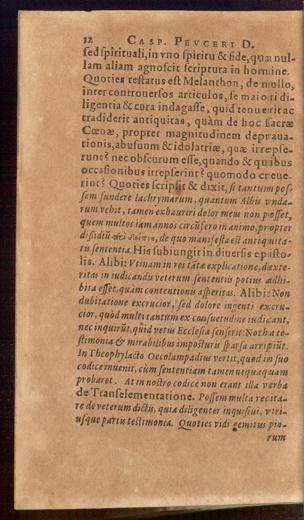 12 CASP. PEVCERI D.
sed spirituali, in vno spiritu & fide, quæ nul-
lam aliam agnoscit scriptura in homine.
Quoties testatus est Melanthon, de nullo,
inter controuersos articulos, se maiori di-
ligentia & cura indagasse, quid tenuerit ac
tradiderit antiquitas, quàm de hoc sacræ
Cœnæ, propter magnitudinem depraua-
tionis, abusuum & idolatriæ, quæ irrepse-
runt? nec obscurum esse, quando & quibus
occasionibus irrepserint? quomodo creue-
rint? Quoties scripsit & dixit, si tantum pos-
sem fundere lachrymarum, quantum Albis vnda-
rum vehit, tamen exhauriri dolor meus non posset,
quem multos iam annos circũfero in animo, propter
dißidiũ de quo manifesta est antiquita-
tis sententia. His subiungit in diuersis episto-
lis. Alibi: Vtinam in rei tãtæ explicatione, dexte-
ritas in iudicandis veterum sententiis potius adhi-
bita esset, quàm contentionis asperitas. Alibi: Non
dubitatione excrucior, sed dolore ingenti excru-
cior, quòd multi tantum ex consuetudine iudicant,
nec inquirũt, quid vetus Ecclesia senserit: Notha te-
stimonia & mirabilibus imposturis sparsa arripiũt.
In Theophylacto Oecolampadius vertit, quod in suo
codice inuenit, cum sententiam tamen nequaquam
probaret. At in nostro codice non erant illa verba
de Transelementatione. Possem multa recita-
re de veterum dictis, quia diligenter inquisiui, vtri-
usque partis testimonia. Quoties vidi gemitus pio-
rum